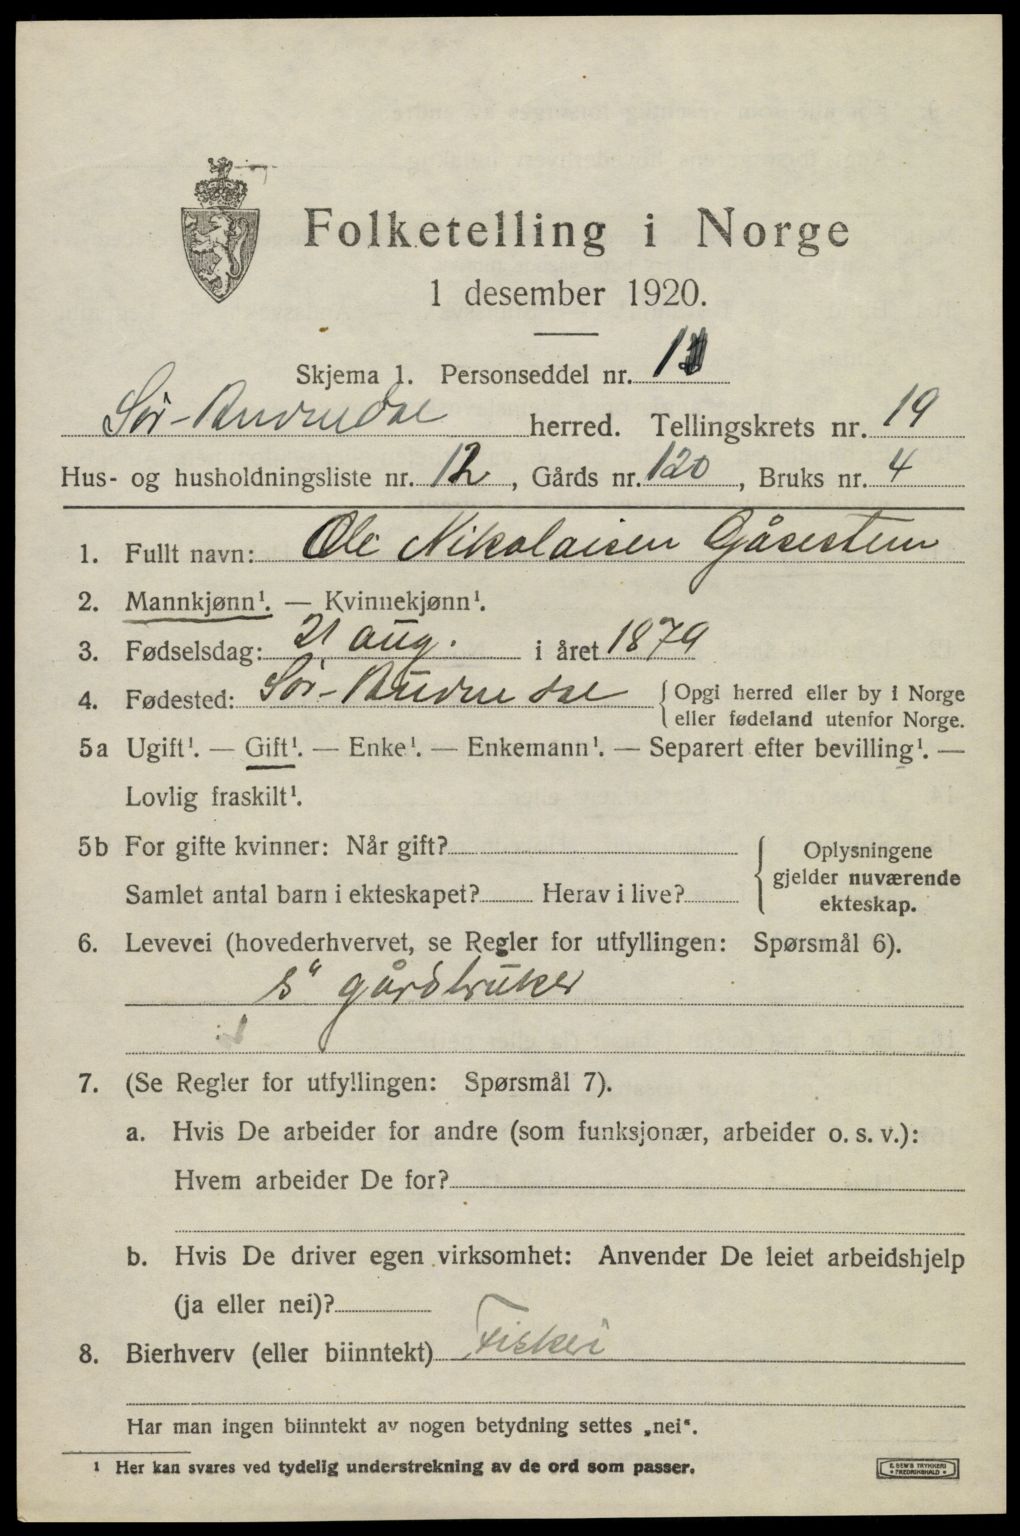 Folketelling i Norge
1 desember 1920.
Skjema 1. Personseddel nr. 1
herred. Tellingskrets nr. 19
Hus- og husholdningsliste nr. 12, Gårds nr. 120, Bruks nr. 4
1. Fullt navn: Ole Nikolaisen Gåsestein
2. Mannkjønn¹. — Kvinnekjønn¹.
3. Fødselsdag: 21 aug. i året 1879
4. Fødested: { Opgi herred eller by i Norge
eller fødeland utenfor Norge.
5a Ugift¹. — Gift¹. — Enke¹. — Enkemann¹. — Separert efter bevilling¹. —
Lovlig fraskilt¹.
5b For gifte kvinner: Når gift?
Samlet antal barn i ekteskapet? Herav i live?
{ Oplysningene
gjelder nuværende
ekteskap.
6. Levevei (hovederhvervet, se Regler for utfyllingen: Spørsmål 6).
gårdbruker
7. (Se Regler for utfyllingen: Spørsmål 7).
a. Hvis De arbeider for andre (som funksjonær, arbeider o. s. v.):
Hvem arbeider De for?
b. Hvis De driver egen virksomhet: Anvender De leiet arbeidshjelp
(ja eller nei)?
8. Bierhverv (eller biinntekt) Fiskeri
Har man ingen biinntekt av nogen betydning settes „nei“.
¹ Her kan svares ved tydelig understrekning av de ord som passer.
E. SEM'S TRYKKERI
FREDRIKSHALD